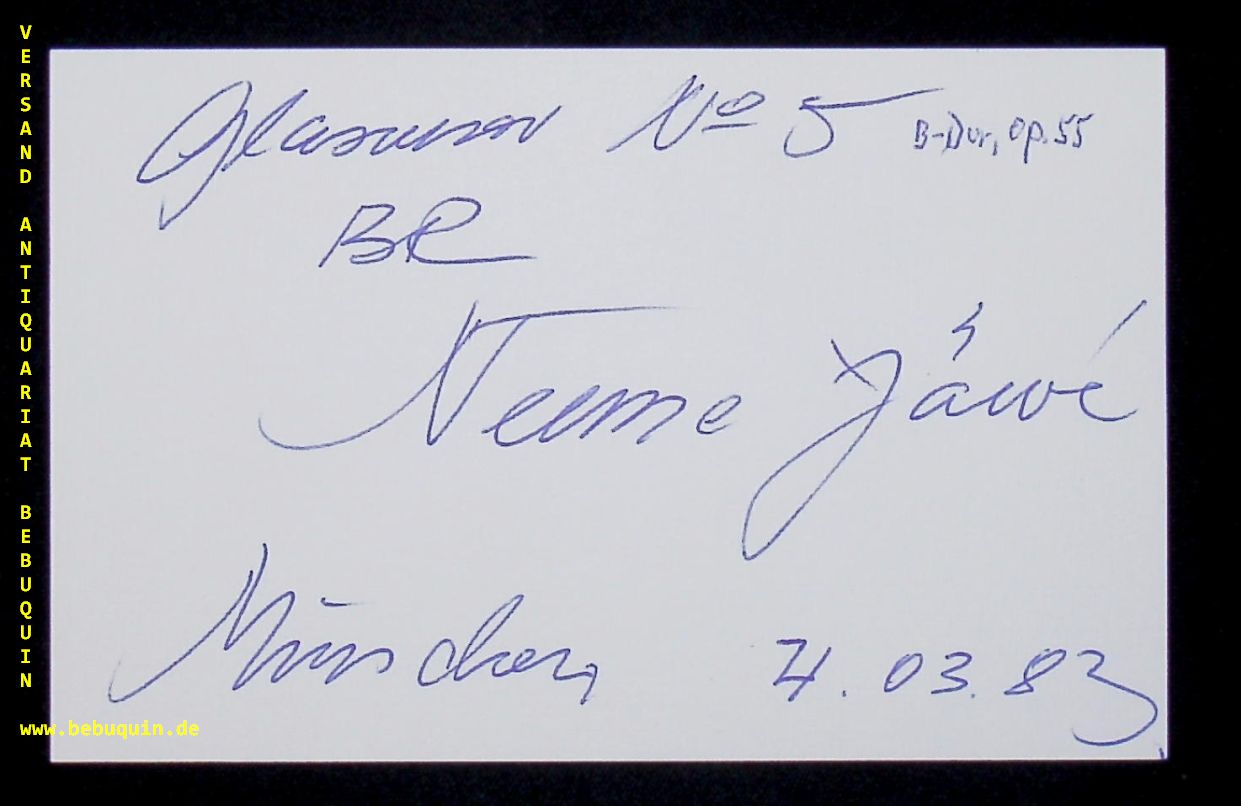 VERSAND ANTIQUARIAT BEBUQUIN
Glasunov Nº 5 B-Dur, op. 55
BR
Neeme Järvi
München 4.03.83
www.bebuquin.de